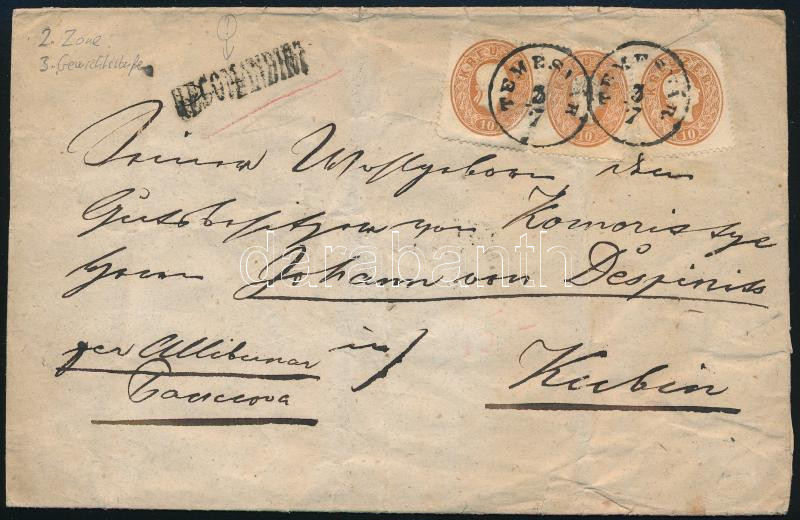 2. Zone
3. Gewichtsstufe
RECOMANDIRT
KREUZER
10
10
10
TEMESVÁR
3
7
TEMESVÁR
3
7
Seiner Wohlgeboren dem
Gutsbesitzer von Komoristye
Herrn Johann von Déspinits
per Allibunar in
Pancsova
Kubin
darabanth